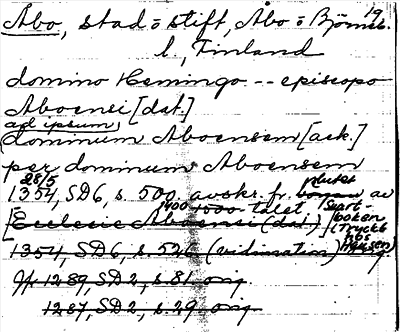 19
Åbo, stad= o stift, Åbo= o Björneb.
l, Finland
domino Hemingo -- episcopo
Aboensi [dat.]
ad ipsum,
(dominum Aboensem [ack.]
per dominum Aboensem
28/5 slutet
1354, SD6, s. 500, avskr. fr. början av
1400 1000 talet. (Svart-
[Ecclesie Aboensi (dat.) boken
(Tryckt hos Hausen)
1354, SD6, s. 526 (vidimation) orig.
Jfr 1289, SD2, s. 81 orig.
1287, SD2, s. 29 orig.